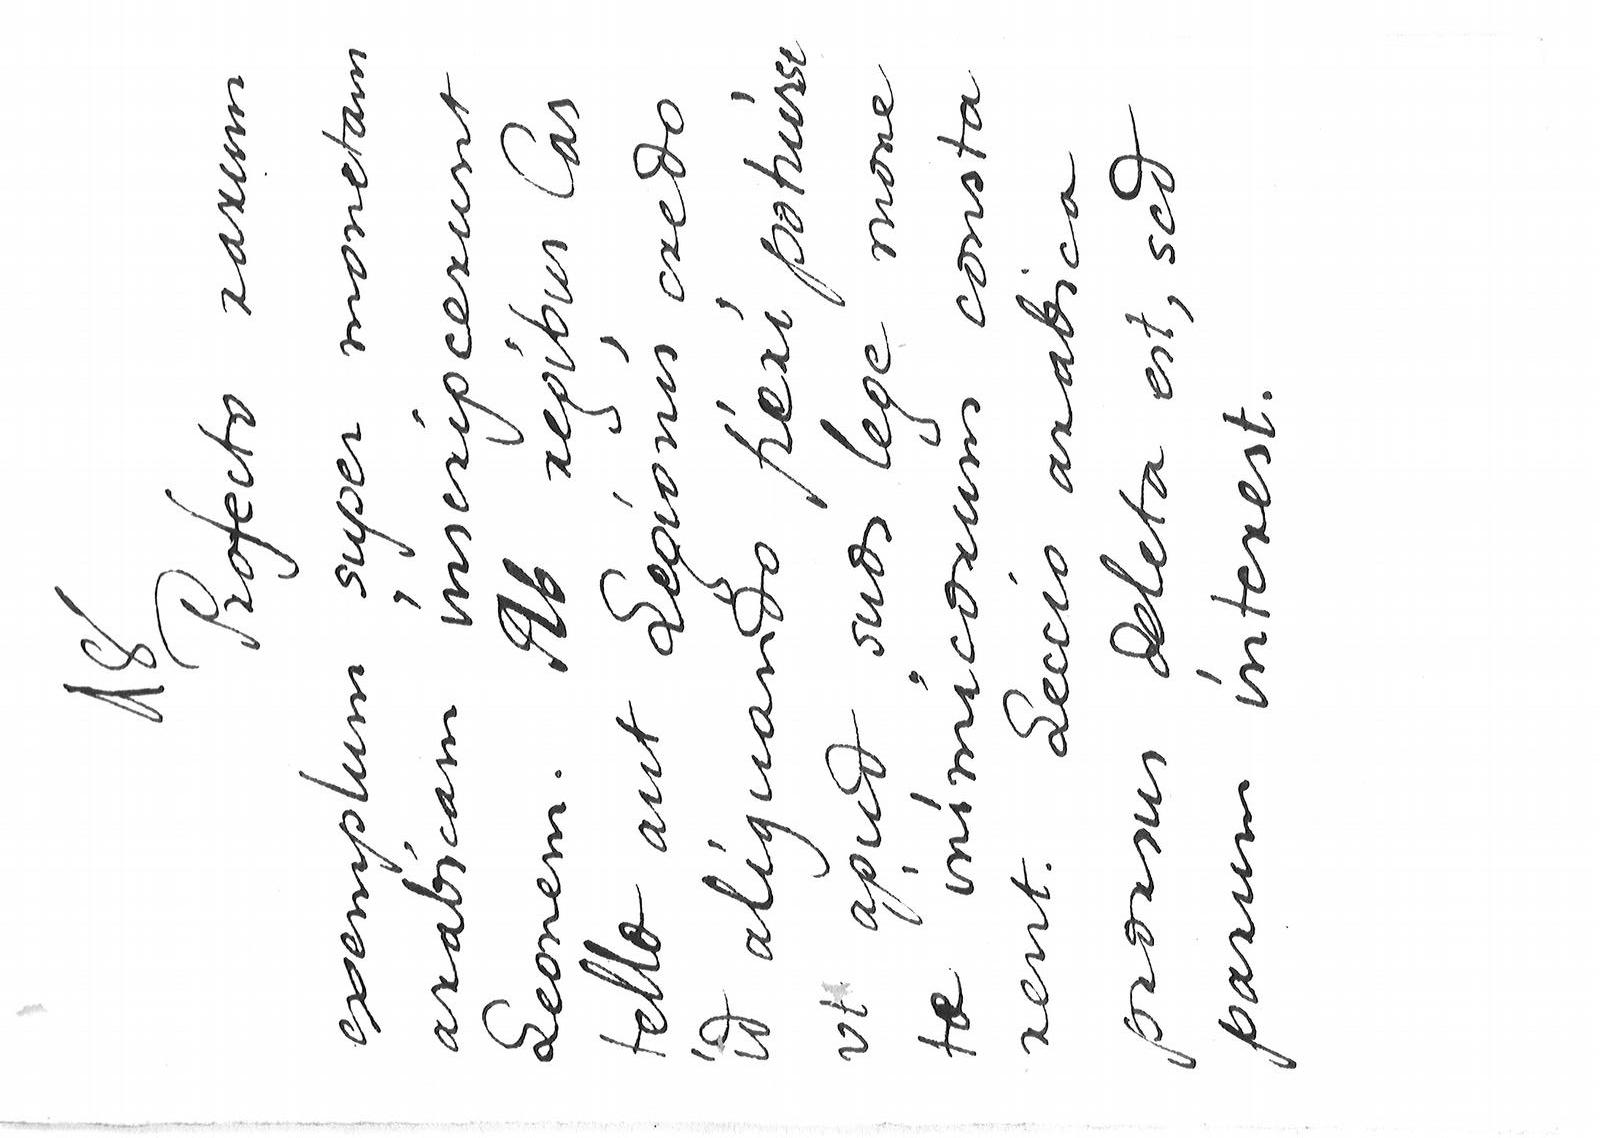 N8
Profecto rarum
exemplum super monetam
arabicam inscripcerunt
Leonem. Ab regibus Cas
tello aut Legionis credo
id aliquando fieri potuisse
vt apud suos lege mone
ta inimicorum consta
rent. Leccio arabica
prorsus deleta est, sed
parum interest.